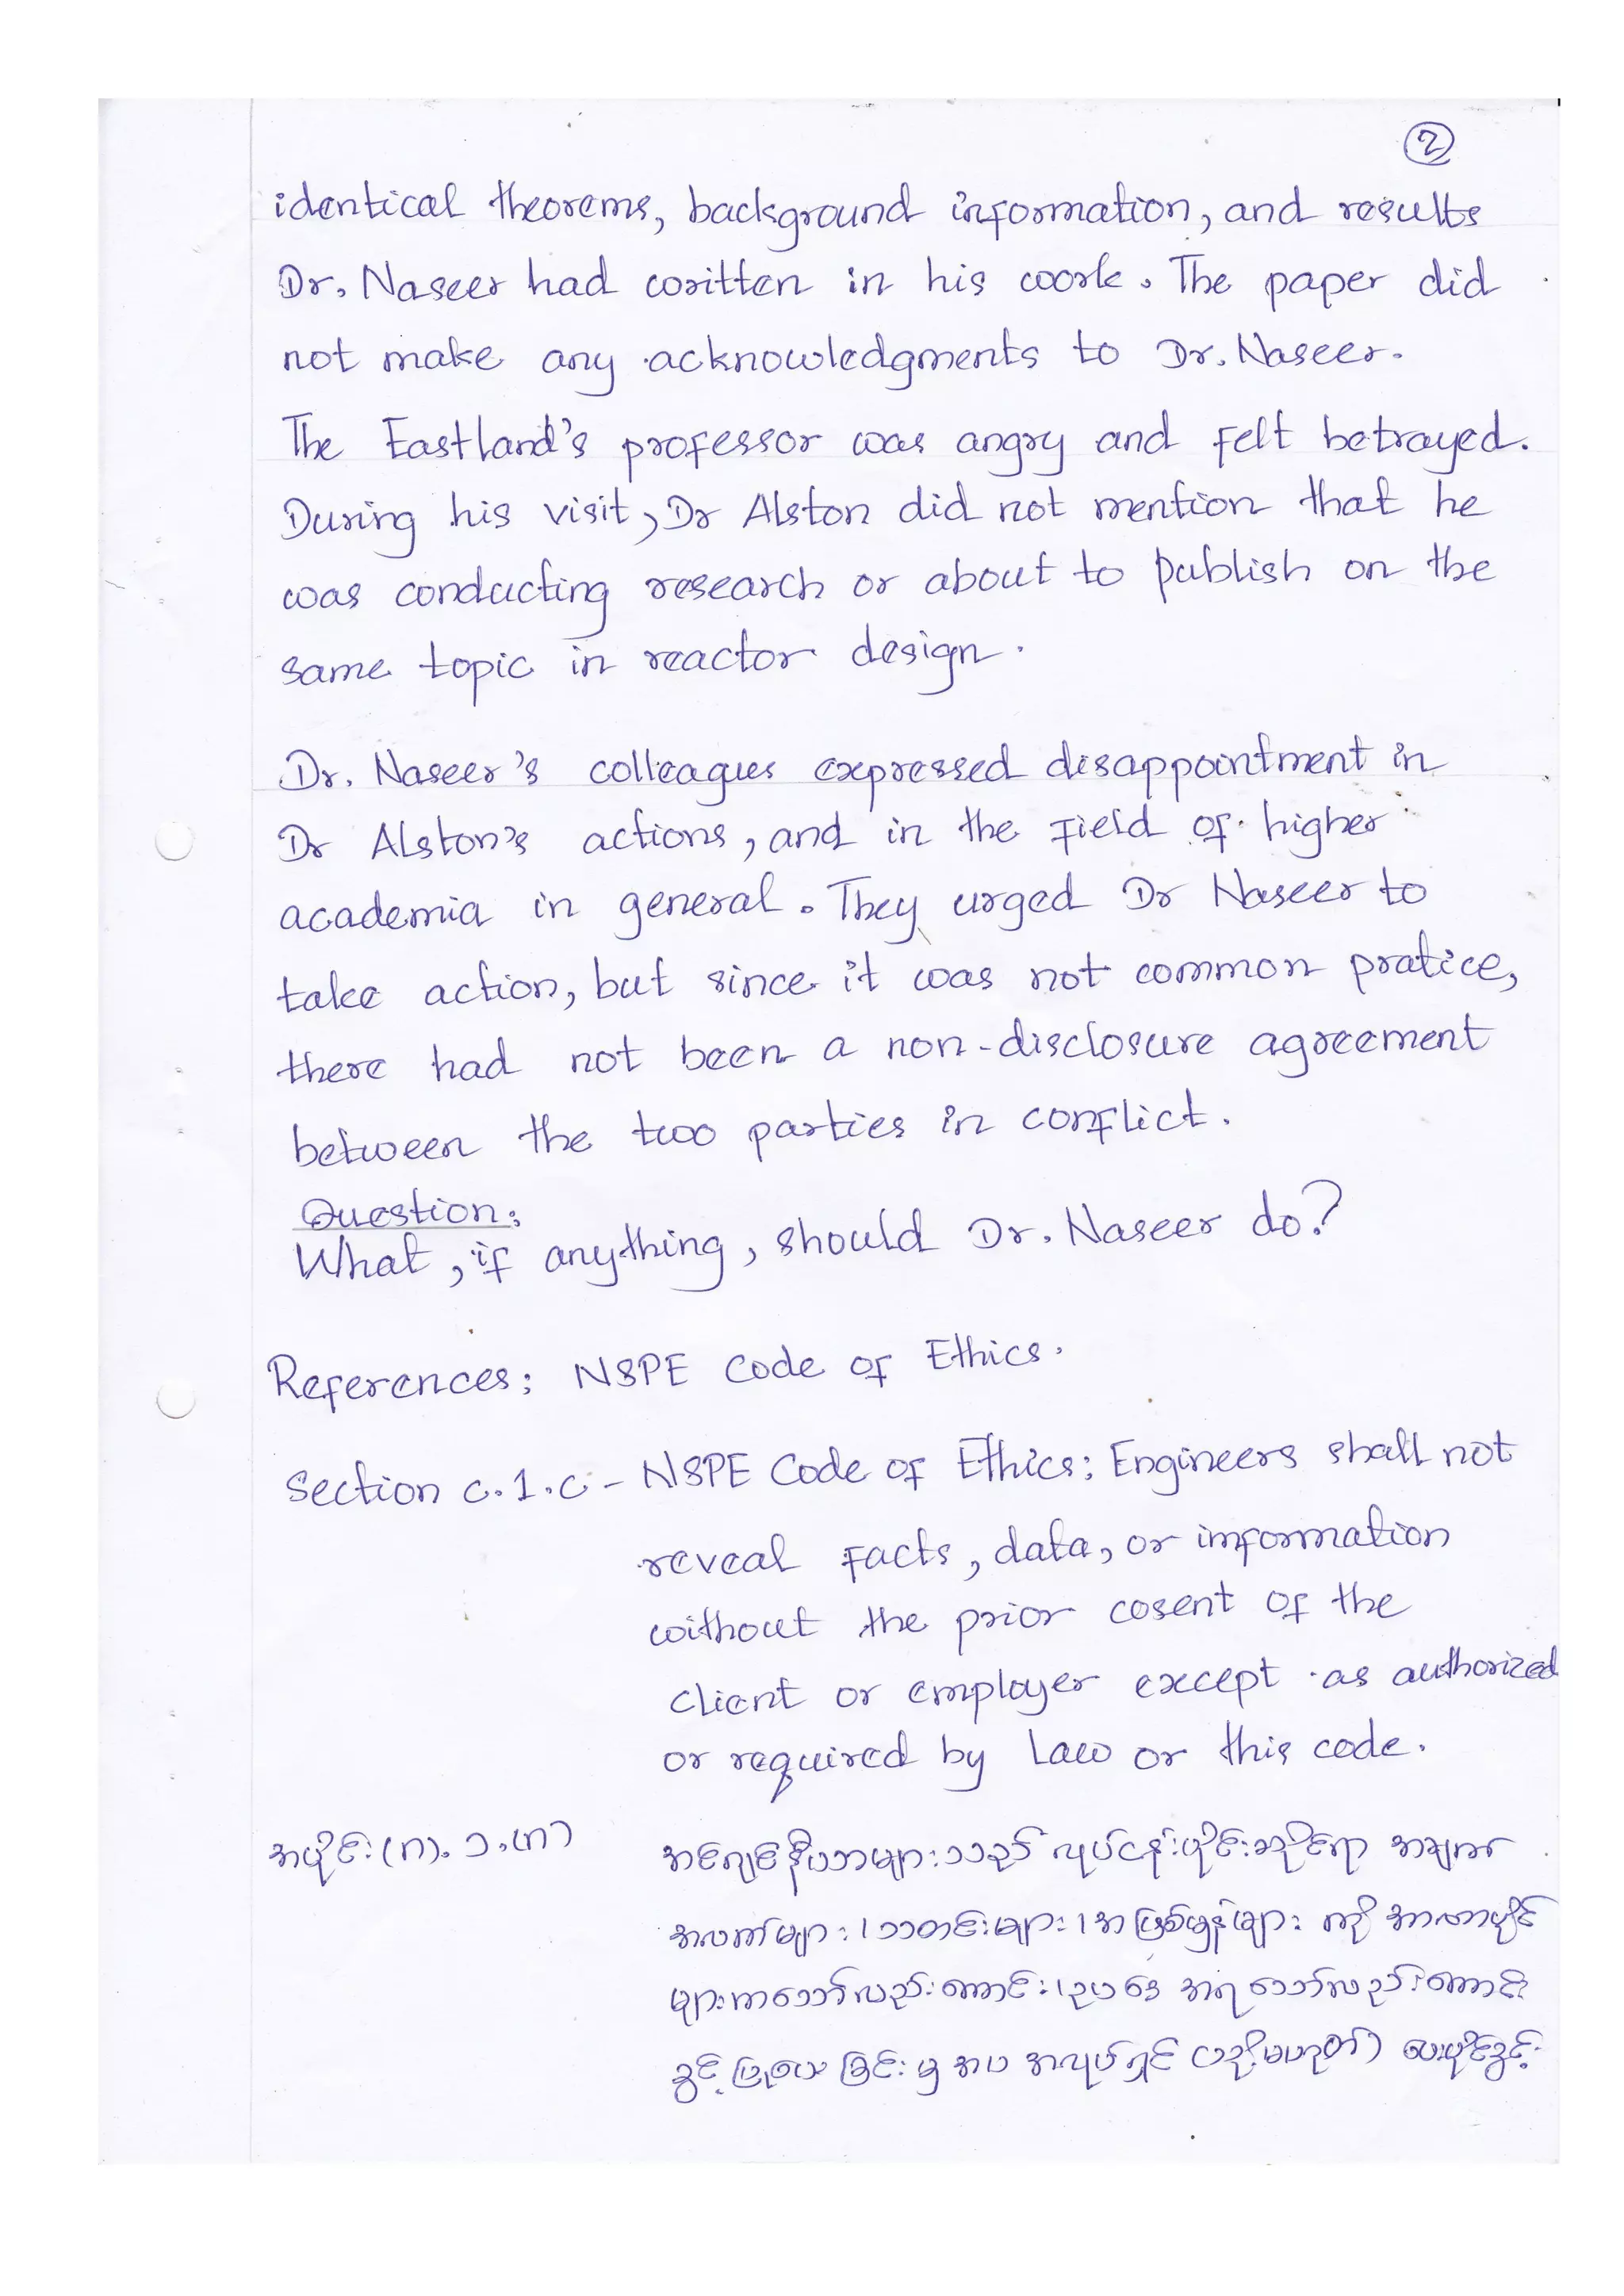 2
identical theorems, background information, and results
Dr. Naseer had written in his work. The paper did
not make any acknowledgments to Dr. Naseer.
The Eastland's professor was angry and felt betrayed.
During his visit, Dr Alston did not mention that he
was conducting research or about to publish on the
same topic in reactor design.
Dr. Naseer's colleagues expressed disappointment in
Dr Alston's actions, and in the field of higher
academia in general. They urged Dr Naseer to
take action, but since it was not common pratice,
there had not been a non-disclosure agreement
between the two parties in conflict.
Question:
What, if anything, should Dr. Naseer do?
References: NSPE Code of Ethics.
Section c.1.c - NSPE Code of Ethics: Engineers shall not
reveal facts, data, or information
without the prior cosent of the
client or employer except as authorized
or required by Law or this code.
အပိုင်း (ဂ). ၁. (ဂ)
အင်ဂျင်နီယာများသည် လုပ်ငန်းပိုင်းဆိုင်ရာ အချက်
အလက်များ၊ သတင်းများ၊ အဖြစ်မှန်များ ကို အာဏာပိုင်
များကသော်လည်းကောင်း၊ ဥပဒေ အရ သော်လည်းကောင်း
ခွင့်ပြုပေးခြင်းမှအပ အလုပ်ရှင် (သို့မဟုတ်) ပေးပိုင်ခွင့်